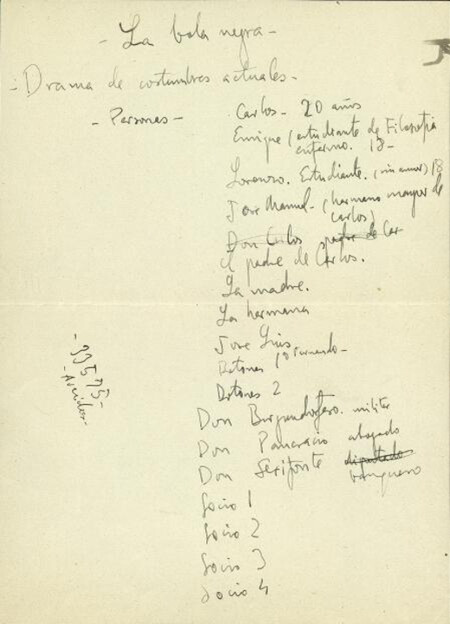 - La bola negra -
- Drama de costumbres actuales -
- Personas -
Carlos - 20 años
Enrique (estudiante de Filosofia
enfermo. 18 -
Lorenzo. Estudiante. 18
Jose Manuel - (hermano mayor de
Carlos)
Don Carlos padre de Car-
El padre de Carlos.
La madre.
La hermana
Jose Luis
Botones 1º Fernando -
Botones 2
Don militar
Don Pancracio abogado
Don Sexiforte diputado
banquero
Socio 1
Socio 2
Socio 3
Socio 4
- 33575 -